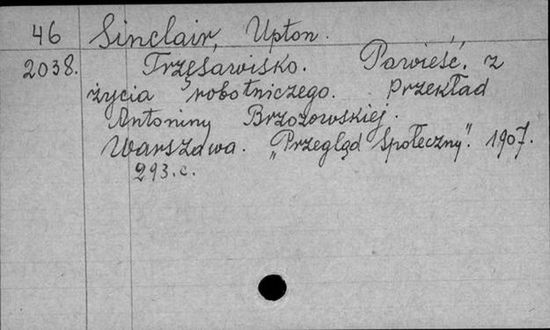 46 Sinclair, Upton.
2038. Trzęsawisko. Powieść, z
życia robotniczego. Przekład
Antoniny Brzozowskiej.
Warszawa. „Przegląd Społeczny". 1907.
293. c.